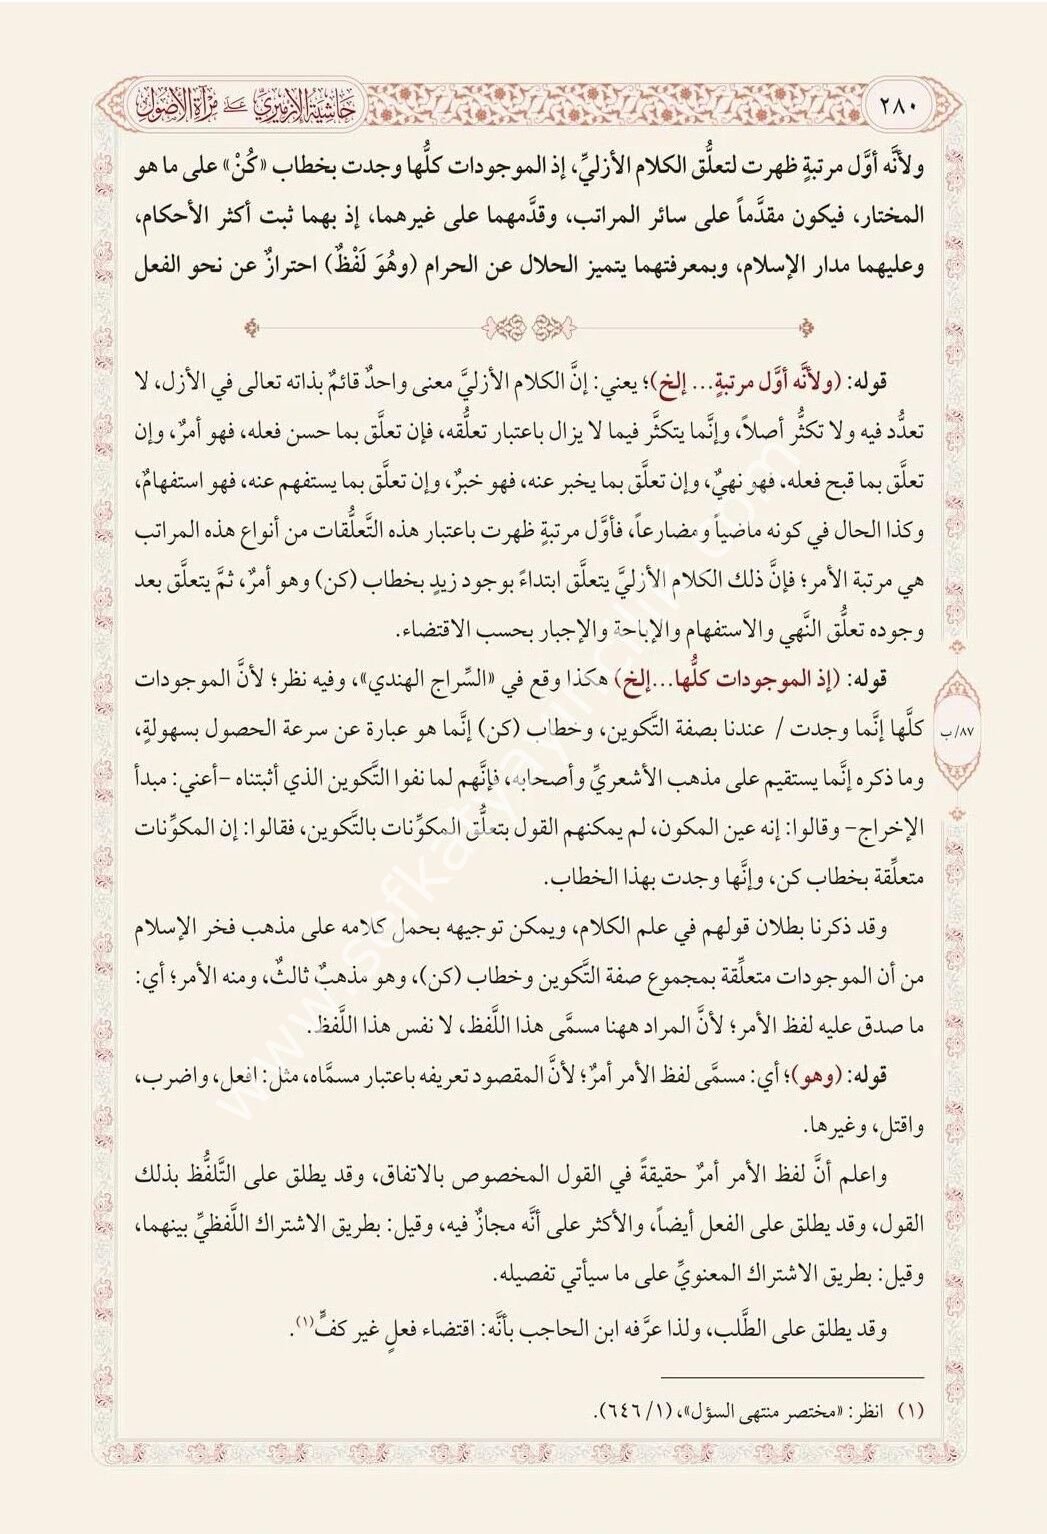 ٢٨٠
حاشية الإزميري على مرآة الأصول
ولأنَّه أوَّل مرتبةٍ ظهرت لتعلُّق الكلام الأزليِّ، إذ الموجودات كلُّها وجدت بخطاب «كُنْ» على ما هو
المختار، فيكون مقدَّماً على سائر المراتب، وقدَّمهما على غيرهما، إذ بهما ثبت أكثر الأحكام،
وعليهما مدار الإسلام، وبمعرفتهما يتميز الحلال عن الحرام (وهُوَ لَفْظٌ) احترازٌ عن نحو الفعل
قوله: (ولأنَّه أوَّل مرتبةٍ... إلخ)؛ يعني: إنَّ الكلام الأزليَّ معنى واحدٌ قائمٌ بذاته تعالى في الأزل، لا
تعدُّد فيه ولا تكثُّر أصلاً، وإنَّما يتكثَّر فيما لا يزال باعتبار تعلُّقه، فإن تعلَّق بما حسن فعله، فهو أمرٌ، وإن
تعلَّق بما قبح فعله، فهو نهيٌ، وإن تعلَّق بما يخبر عنه، فهو خبرٌ، وإن تعلَّق بما يستفهم عنه، فهو استفهامٌ،
وكذا الحال في كونه ماضياً ومضارعاً، فأوَّل مرتبةٍ ظهرت باعتبار هذه التَّعلُّقات من أنواع هذه المراتب
هي مرتبة الأمر؛ فإنَّ ذلك الكلام الأزليَّ يتعلَّق ابتداءً بوجود زيدٍ بخطاب (كن) وهو أمرٌ، ثمَّ يتعلَّق بعد
وجوده تعلُّق النَّهي والاستفهام والإباحة والإجبار بحسب الاقتضاء.
قوله: (إذ الموجودات كلُّها...إلخ) هكذا وقع في «السِّراج الهندي»، وفيه نظر؛ لأنَّ الموجودات
كلَّها إنَّما وجدت / عندنا بصفة التَّكوين، وخطاب (كن) إنَّما هو عبارة عن سرعة الحصول بسهولةٍ،
٨٧/ب
وما ذكره إنَّما يستقيم على مذهب الأشعريِّ وأصحابه، فإنَّهم لما نفوا التَّكوين الذي أثبتناه -أعني: مبدأ
الإخراج- وقالوا: إنه عين المكون، لم يمكنهم القول بتعلُّق المكوِّنات بالتَّكوين، فقالوا: إن المكوِّنات
متعلِّقة بخطاب كن، وإنَّها وجدت بهذا الخطاب.
وقد ذكرنا بطلان قولهم في علم الكلام، ويمكن توجيهه بحمل كلامه على مذهب فخر الإسلام
من أن الموجودات متعلِّقة بمجموع صفة التَّكوين وخطاب (كن)، وهو مذهبٌ ثالثٌ، ومنه الأمر؛ أي:
ما صدق عليه لفظ الأمر؛ لأنَّ المراد ههنا مسمَّى هذا اللَّفظ، لا نفس هذا اللَّفظ.
قوله: (وهو)؛ أي: مسمَّى لفظ الأمر أمرٌ؛ لأنَّ المقصود تعريفه باعتبار مسمَّاه، مثل: افعل، واضرب،
واقتل، وغيرها.
واعلم أنَّ لفظ الأمر أمرٌ حقيقةً في القول المخصوص بالاتفاق، وقد يطلق على التَّلفُّظ بذلك
القول، وقد يطلق على الفعل أيضاً، والأكثر على أنَّه مجازٌ فيه، وقيل: بطريق الاشتراك اللَّفظيِّ بينهما،
وقيل: بطريق الاشتراك المعنويِّ على ما سيأتي تفصيله.
وقد يطلق على الطَّلب، ولذا عرَّفه ابن الحاجب بأنَّه: اقتضاء فعلٍ غير كفٍّ(١).
(١) انظر: «مختصر منتهى السؤل»، (١/ ٦٤٦).